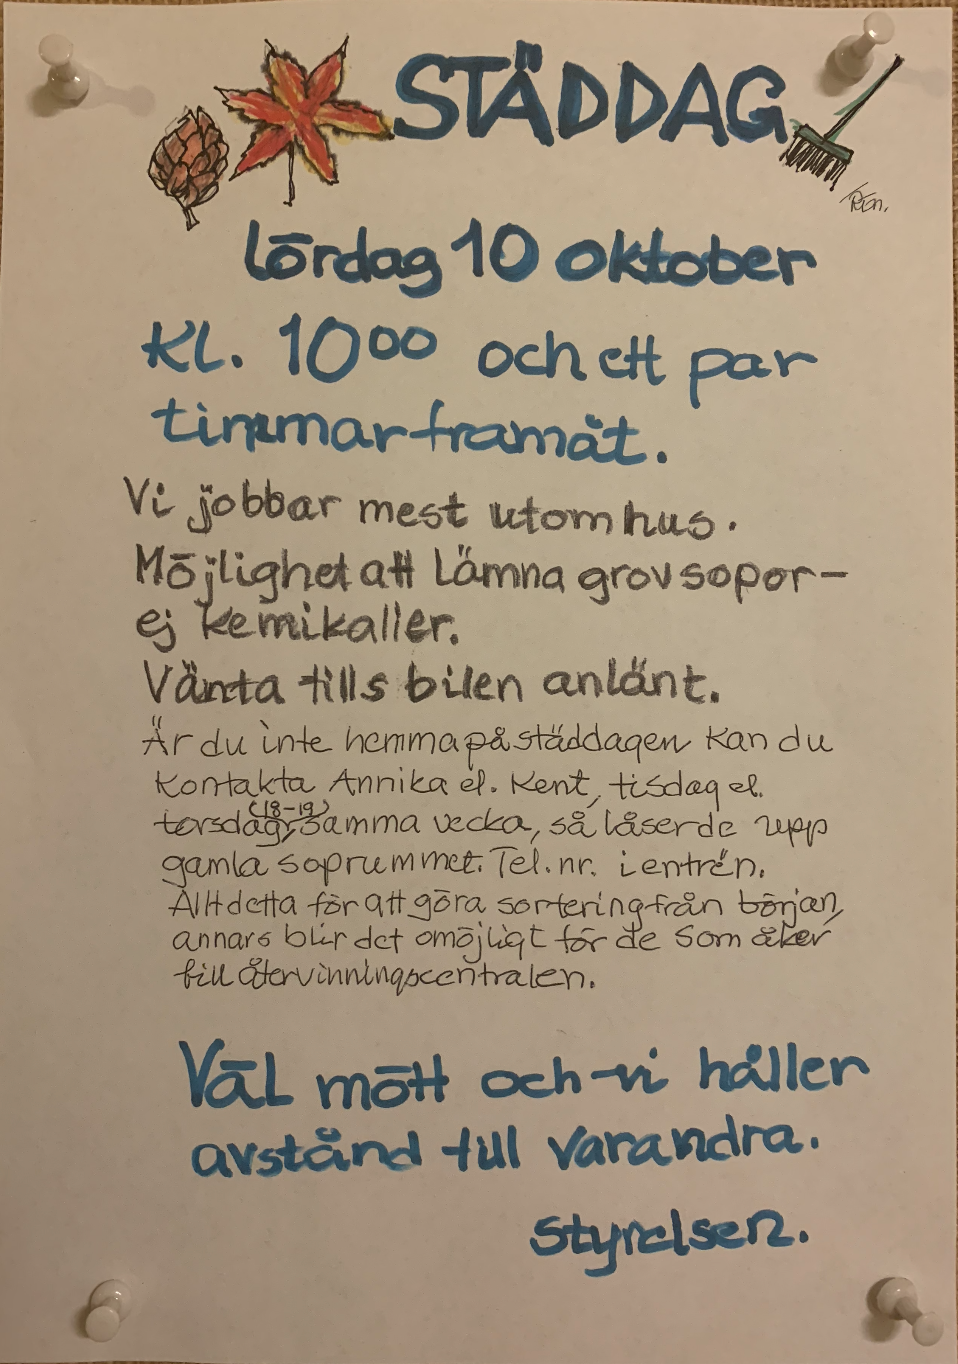 STÄDDAG
lördag 10 oktober
Kl. 10⁰⁰ och ett par
timmar framåt.
Vi jobbar mest utomhus.
Möjlighet att lämna grovsopor-
ej kemikaller.
Vänta tills bilen anlänt.
Är du inte hemma på städdagen kan du
kontakta Annika el. Kent, tisdag el.
(18-19)
torsdag, samma vecka, så låser de upp
gamla soprummet. Tel. nr. i entrén.
Allt detta för att göra sortering från början,
annars blir det omöjligt för de som åker
till återvinningscentralen.
Väl mött och vi håller
avstånd till varandra.
Styrelsen.